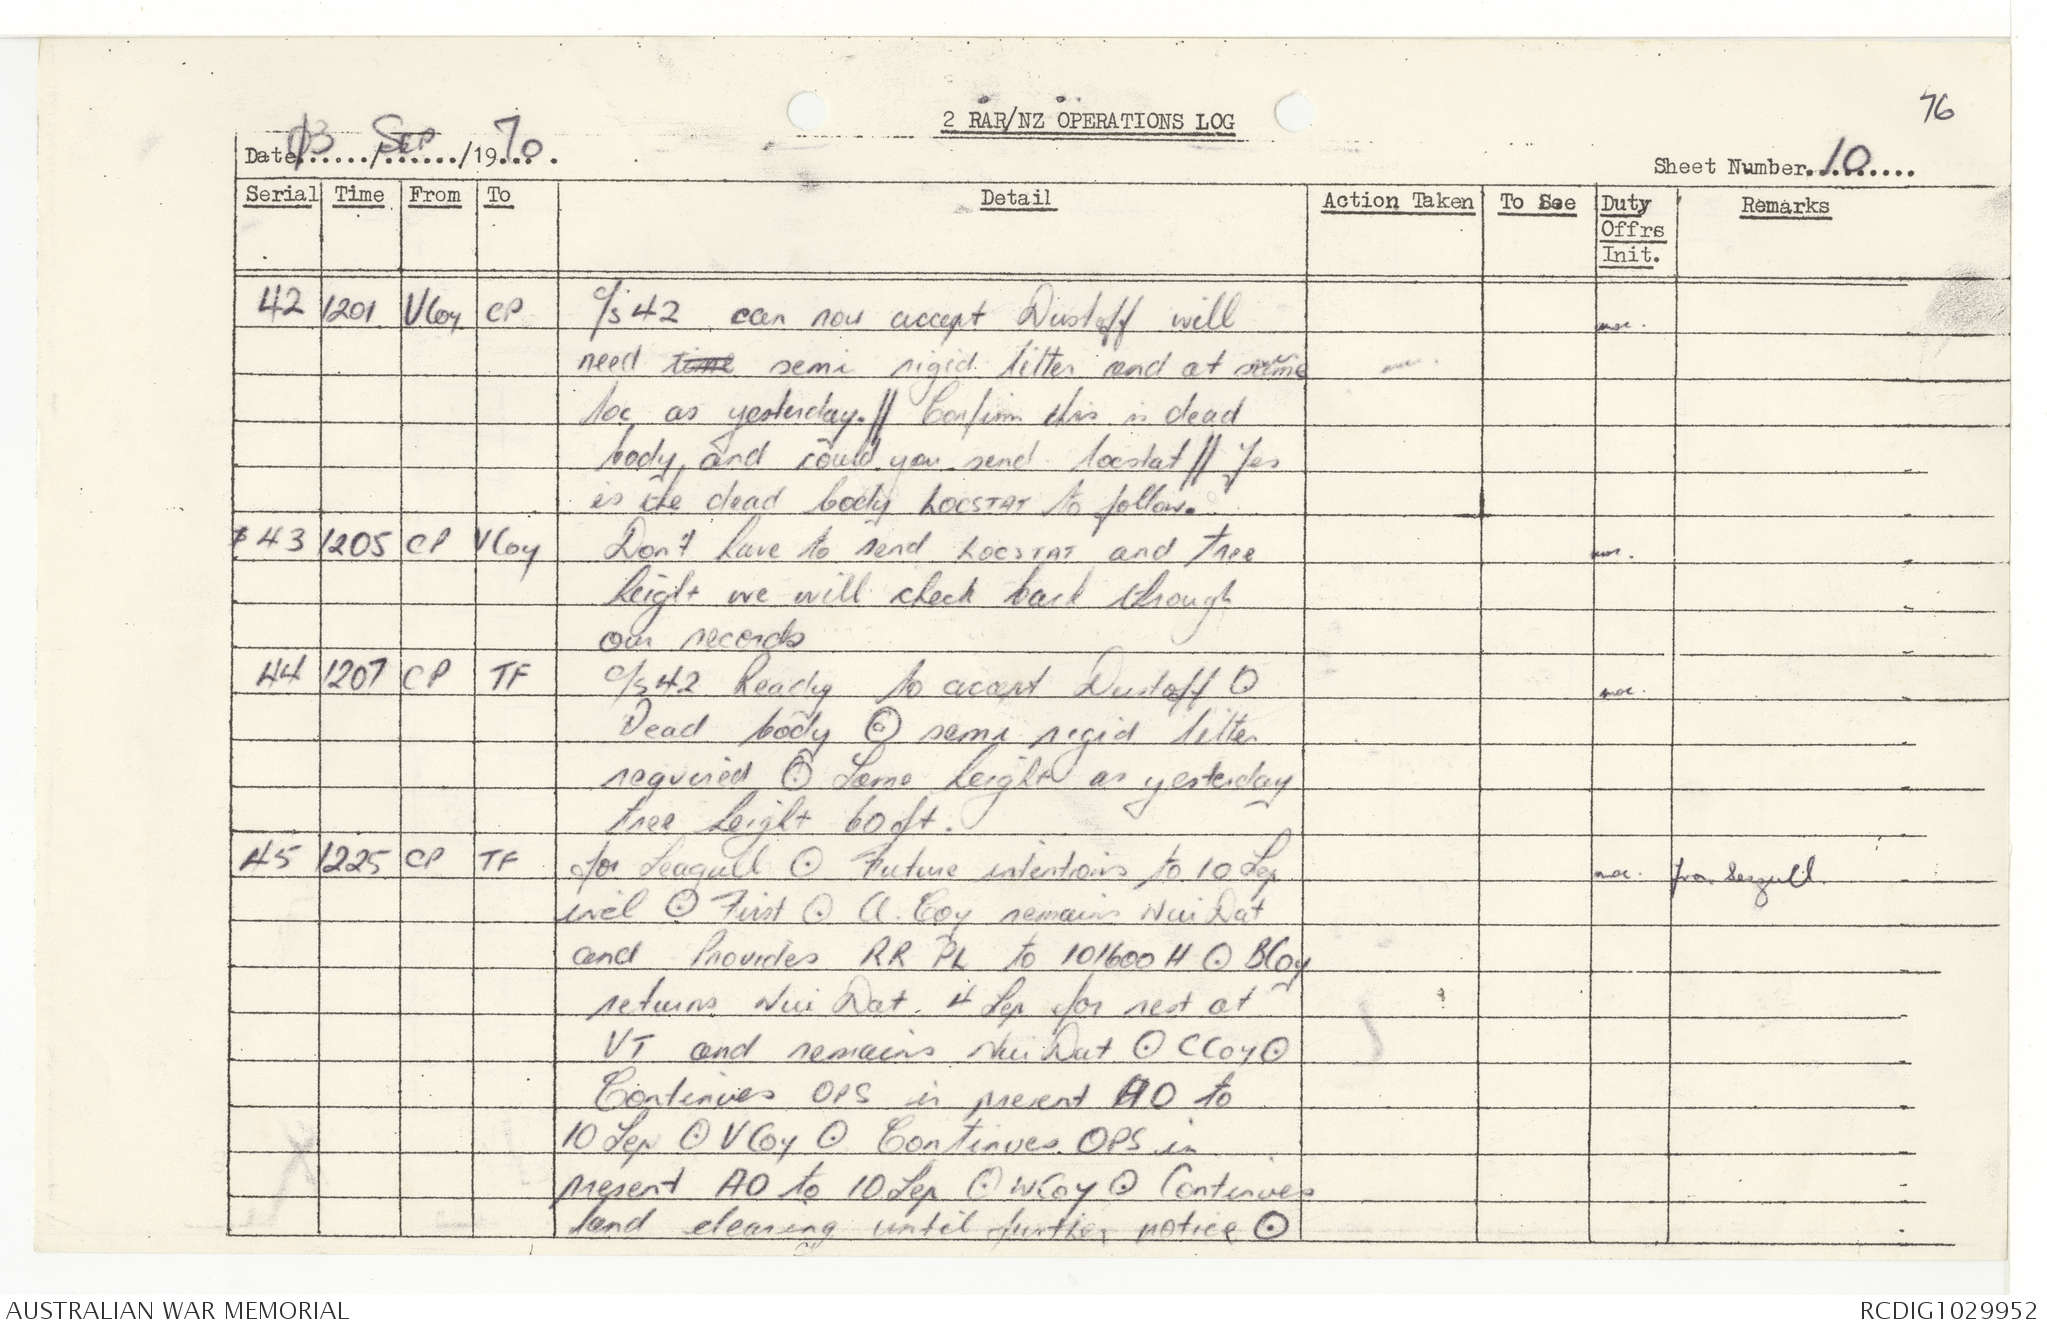 76
2 RAR/NZ OPERATIONS LOG
Date 03/SEP/1970.
Sheet Number 10
Serial Time From To Detail Action Taken To See Duty Offrs Init. Remarks
42 1201 VCoy CP c/s 42 can now accept Dustoff will
need time semi rigid litter and at same
loc as yesterday. // Confirm this is dead
body, and could you send locstat // Yes
is the dead body LOCSTAT to follow.
43 1205 CP VCoy Don't have to send LOCSTAT and tree
height we will check back through
our records
44 1207 CP TF c/s 42 Ready to accept Dustoff ⊙
Dead body ⊙ semi rigid litter
required ⊙ Same height as yesterday
tree height 60 ft.
45 1225 CP TF for Seagull ⊙ Future intentions to 10 Sep from Seagull
incl ⊙ First ⊙ A. Coy remains Nui Dat
and Provides RR PL to 101600 H ⊙ BCoy
returns Nui Dat. 4 Sep for rest at
VT and remains Nui Dat ⊙ CCoy ⊙
Continues OPS in present AO to
10 Sep ⊙ VCoy ⊙ Continues OPS in
present AO to 10 Sep ⊙ WCoy ⊙ Continues
land clearing until further notice ⊙
AUSTRALIAN WAR MEMORIAL
RCDIG1029952